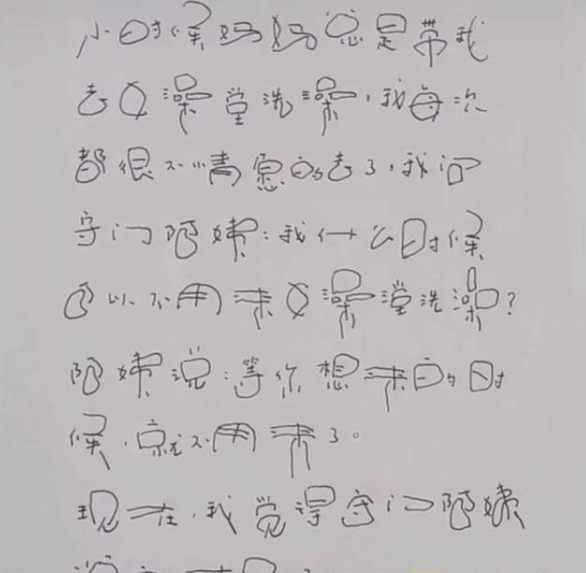 小时候妈妈总是带我
去女澡堂洗澡，我每次
都很不情愿的去了，我问
守门阿姨：我什么时候
可以不用来女澡堂洗澡？
阿姨说：等你想来的时
候，就不用来了。
现在，我觉得守门阿姨